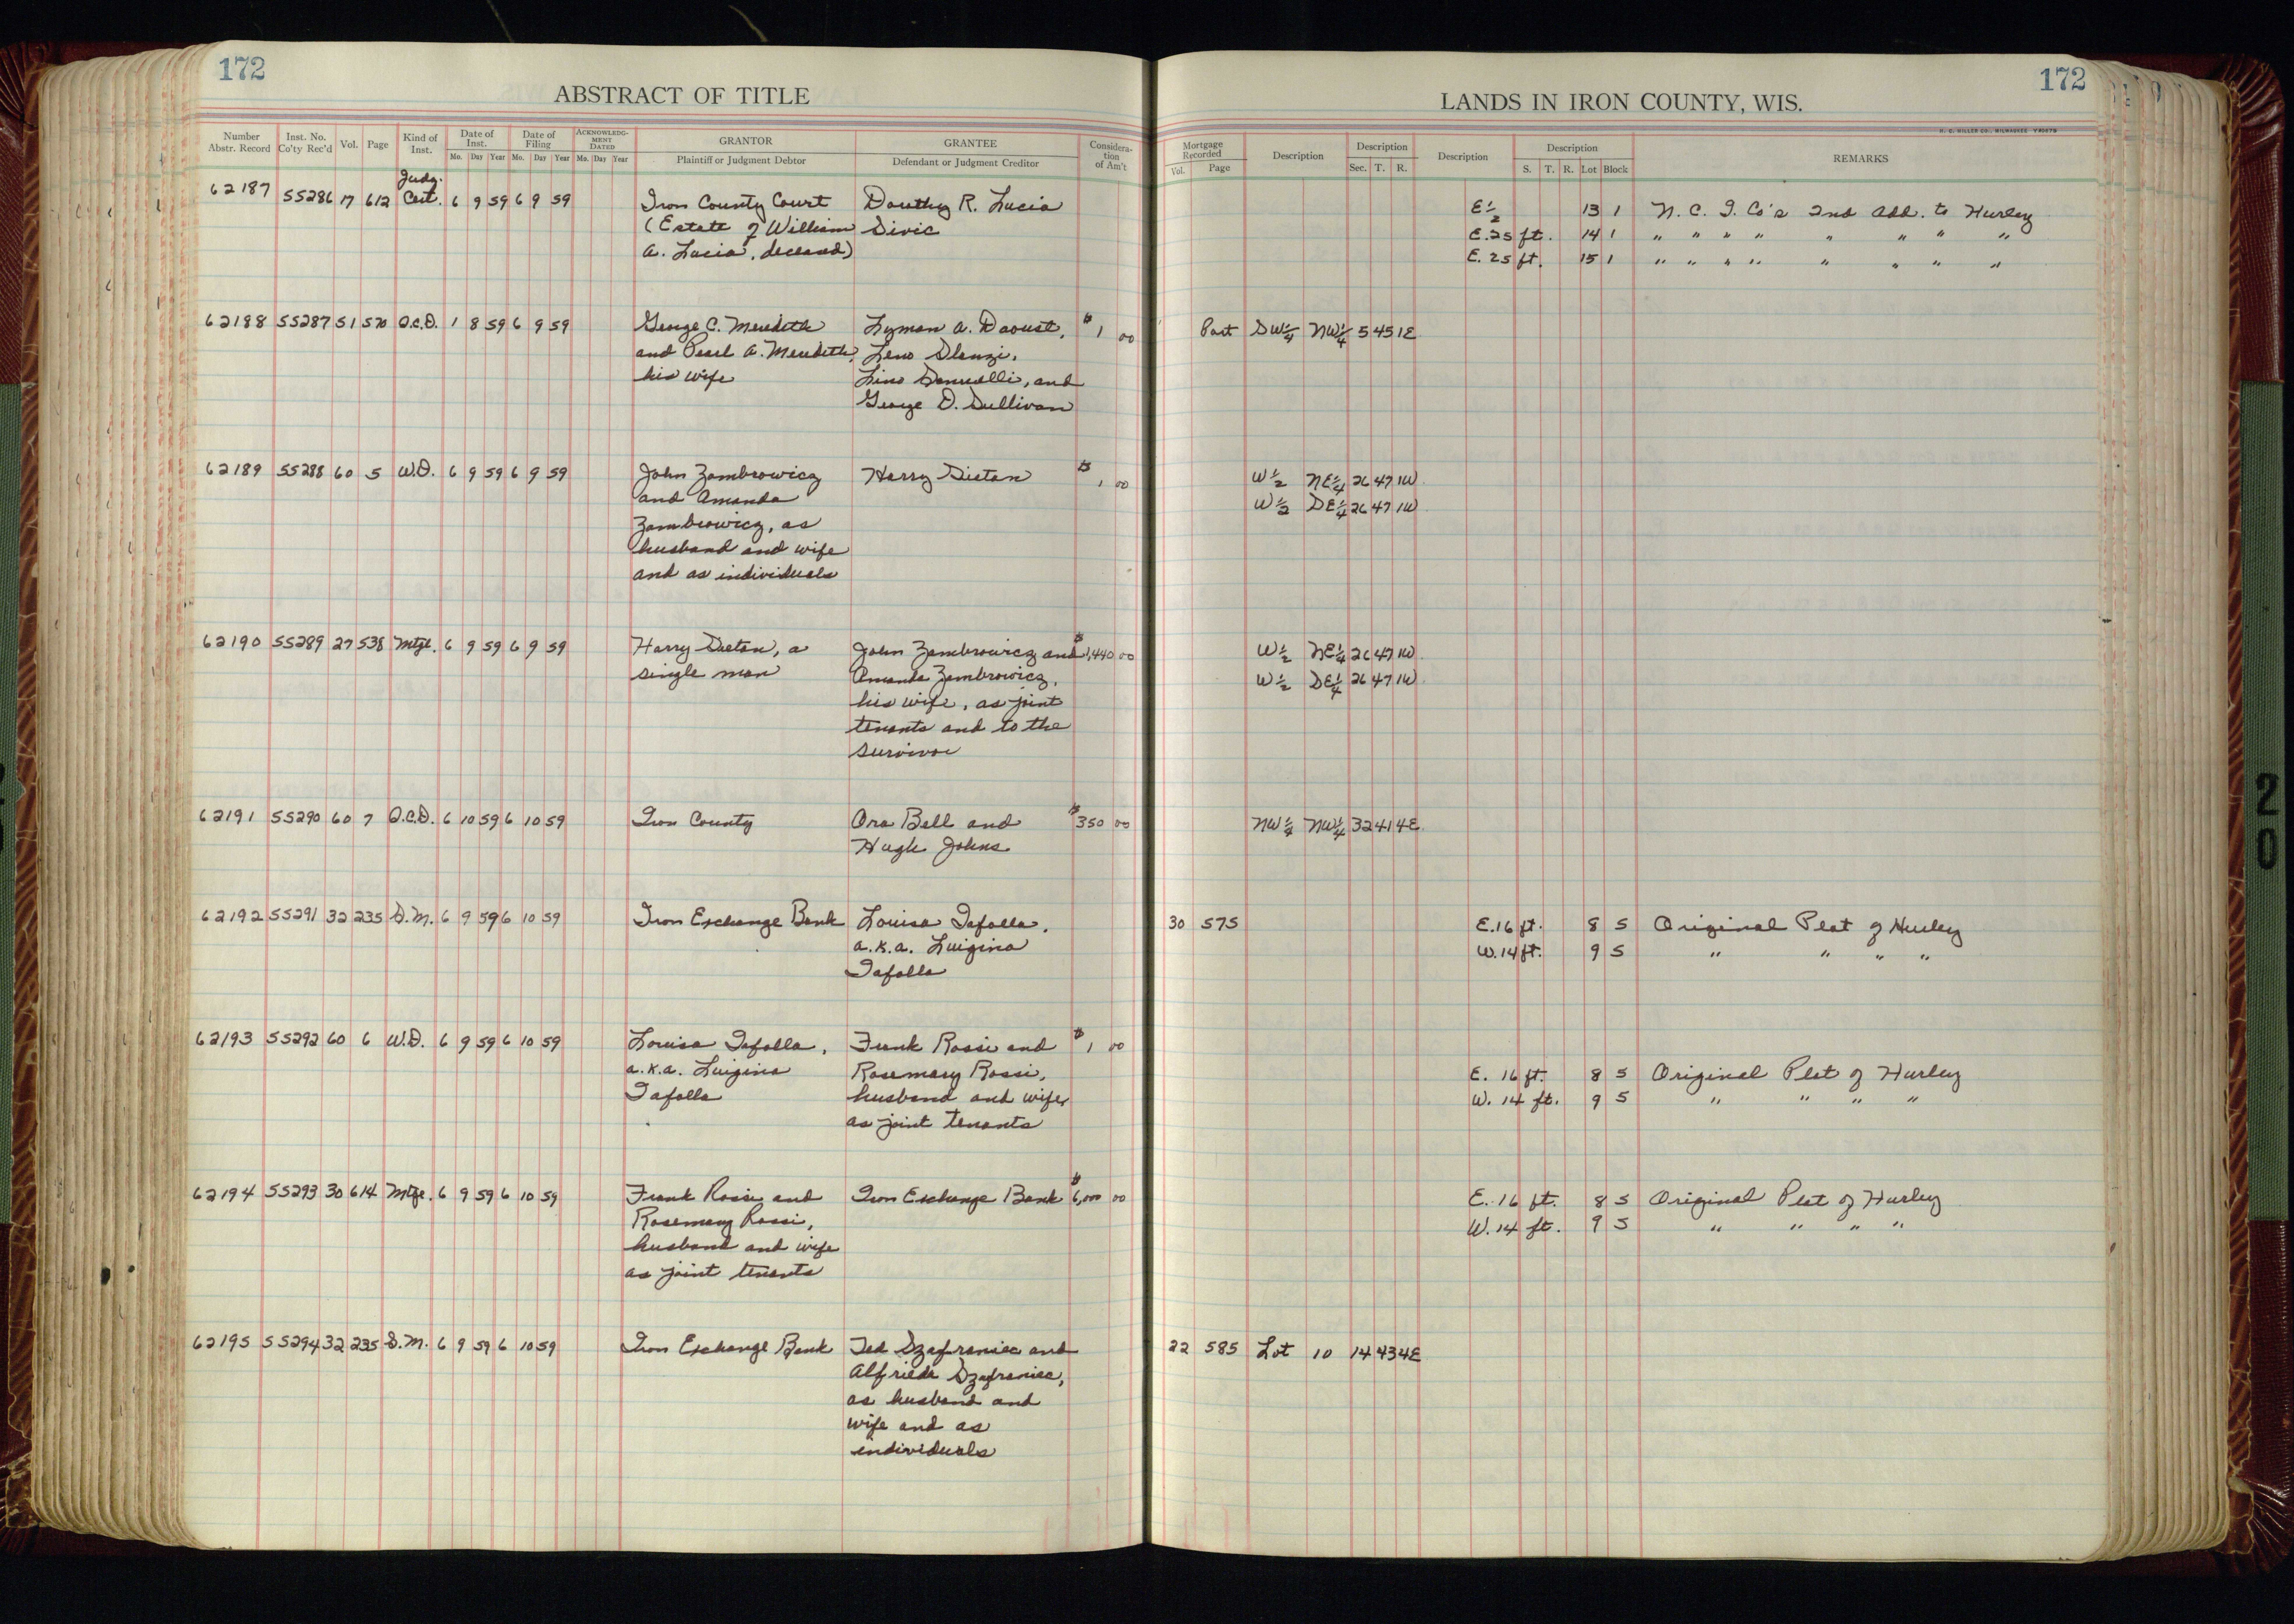 172
ABSTRACT OF TITLE
Number Abstr. Record Inst. No. Co'ty Rec'd Vol. Page Kind of Inst. Date of Inst. Mo. Day Year Date of Filing Mo. Day Year ACKNOWLEDGMENT DATED Mo. Day Year GRANTOR Plaintiff or Judgment Debtor GRANTEE Defendant or Judgment Creditor Consideration of Am't
Judg.
62187 55286 17 612 Cert. 6 9 59 6 9 59 Iron County Court Dorothy R. Lucia
(Estate of William Sivic
A. Lucia, deceased)
62188 55287 51 570 Q.C.D. 1 8 59 6 9 59 George C. Meredith Lyman A. Daoust, $1 00
and Pearl A. Meredith, Leno Slanzi,
his wife Lino and
George D. Sullivan
62189 55288 60 5 W.D. 6 9 59 6 9 59 John Zambrowicz Harry $1 00
and Amanda
Zambrowicz, as
husband and wife
and as individuals
62190 55289 27 538 Mtge. 6 9 59 6 9 59 Harry a John Zambrowicz and $1,440 00
single man Amanda Zambrowicz,
his wife, as joint
tenants and to the
survivor
62191 55290 60 7 Q.C.D. 6 10 59 6 10 59 Iron County Ora Bell and $350 00
Hugh Johns
62192 55291 32 235 S.M. 6 9 59 6 10 59 Iron Exchange Bank Louisa Tafolla,
a.k.a. Luigina
Tafolla
62193 55292 60 6 W.D. 6 9 59 6 10 59 Louisa Tafolla, Frank Rossi and $1 00
a.k.a. Luigina Rosemary Rossi,
Tafolla husband and wife,
as joint tenants
62194 55293 30 614 Mtge. 6 9 59 6 10 59 Frank Rossi and Iron Exchange Bank $6,000 00
Rosemary Rossi,
husband and wife
as joint tenants
62195 55294 32 235 S.M. 6 9 59 6 10 59 Iron Exchange Bank Ted Szafraniec and
Alfrieda Szafraniec,
as husband and
wife and as
individuals
172
LANDS IN IRON COUNTY, WIS.
H. C. MILLER CO., MILWAUKEE
Mortgage Recorded Vol. Page Description Description Sec. T. R. Description Description S. T. R. Lot Block REMARKS
E½ 13 1 N. C. I. Co's 2nd Add. to Hurley
E. 25 ft. 14 1 " " " " " " " "
E. 25 ft. 15 1 " " " " " " " "
Part SW¼ NW¼ 5 45 1E
W½ NE¼ 26 47 1W
W½ SE¼ 26 47 1W
W½ NE¼ 26 47 1W
W½ SE¼ 26 47 1W
NW¼ NW¼ 32 41 4E
30 575 E. 16 ft. 8 5 Original Plat of Hurley
W. 14 ft. 9 5 " " " "
E. 16 ft. 8 5 Original Plat of Hurley
W. 14 ft. 9 5 " " " "
E. 16 ft. 8 5 Original Plat of Hurley
W. 14 ft. 9 5 " " " "
22 585 Lot 10 14 43 4E
20